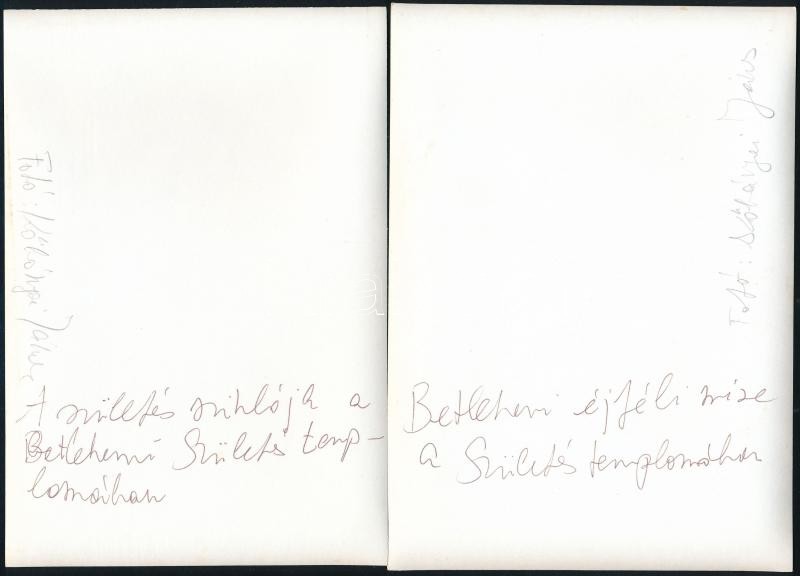 Fotó: Kőbányai János
A születés sziklája a
Betlehemi Születés temp-
lomában
Fotó: Kőbányai János
Betlehemi éjféli mise
a Születés templomában